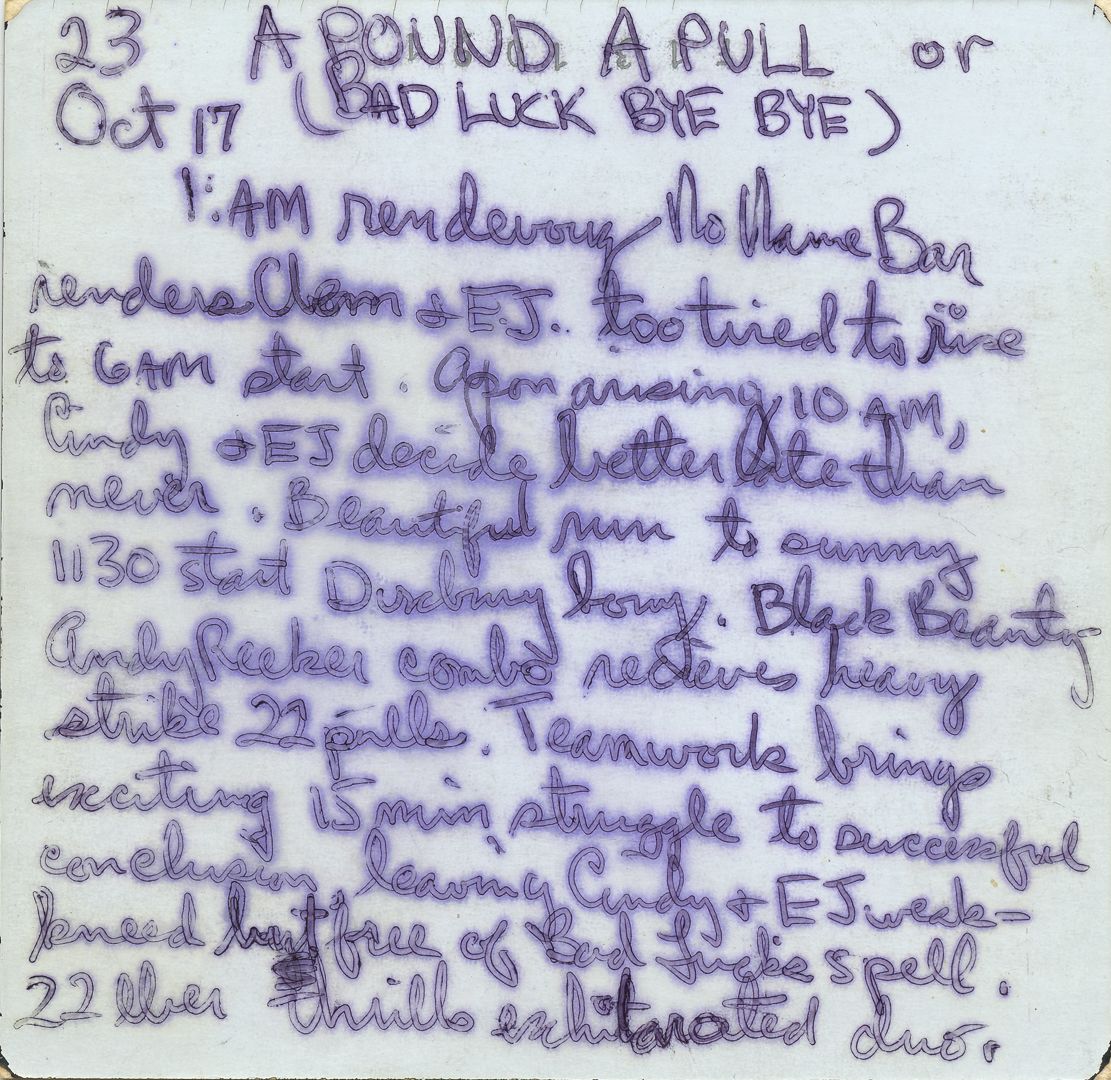 23 A POUND A PULL or
Oct 17 (BAD LUCK BYE BYE)
1:AM rendevouz No Name Bar
renders Clem & E.J. too tired to rise
to 6 AM start. Apon arising 10 AM,
Cindy & EJ decide better late than
never. Beautiful run to sunny
1130 start Duxbury bouy. Black Beauty
Andy Reeker combo recieves heavy
strike 22 pulls. Teamwork brings
exciting 15 min, struggle to successful
conclusion leaving Cindy & EJ weak-
kneed but free of Bad Luck's spell.
22 lber thrills exhilarated duo.